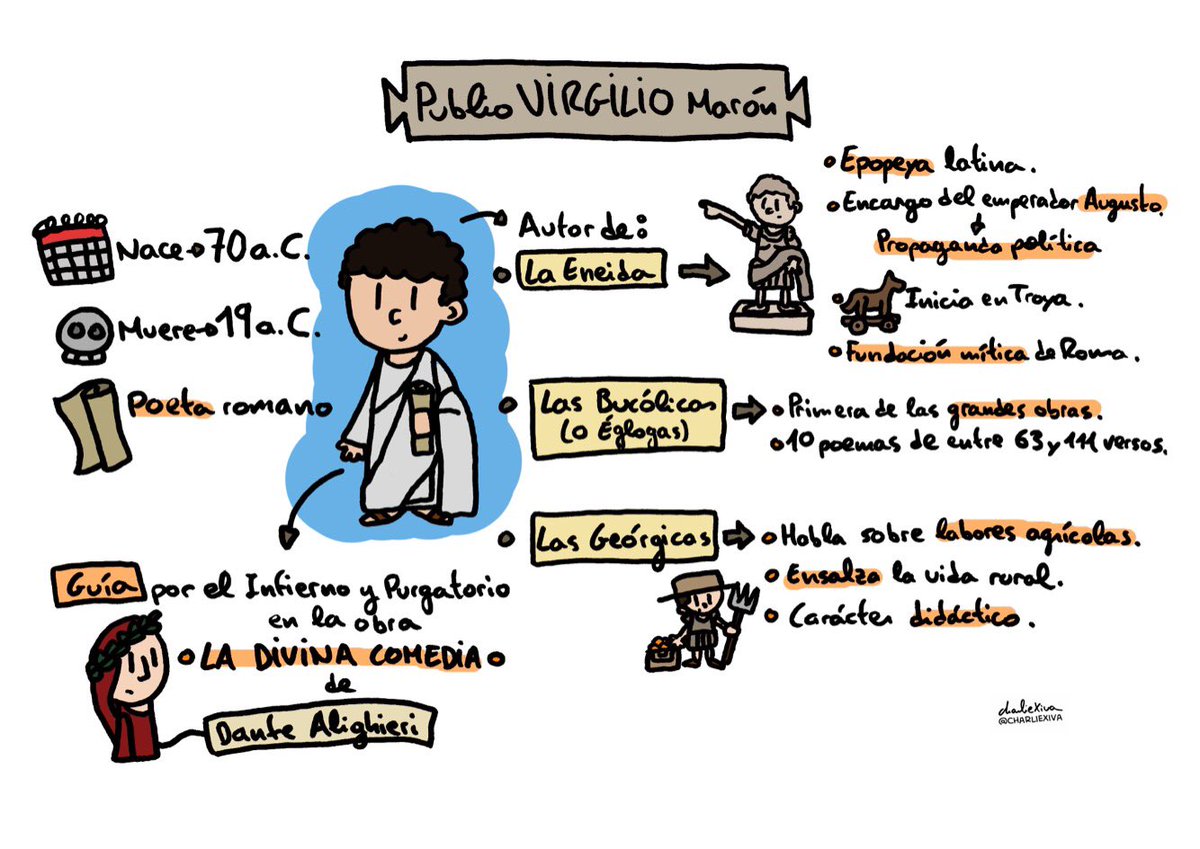 Publio VIRGILIO Marón
Nace→70 a.C.
Muere→19 a.C.
Poeta romano
Autor de:
La Eneida
Epopeya latina.
Encargo del emperador Augusto.
Propaganda política
Inicia en Troya.
Fundación mítica de Roma.
Las Bucólicas
(o Églogas)
Primera de las grandes obras.
10 poemas de entre 63 y 111 versos.
Las Geórgicas
Habla sobre labores agrícolas.
Ensalza la vida rural.
Carácter didáctico.
Guía por el Infierno y Purgatorio
en la obra
LA DIVINA COMEDIA
de
Dante Alighieri
charliexiva
@CHARLIEXIVA